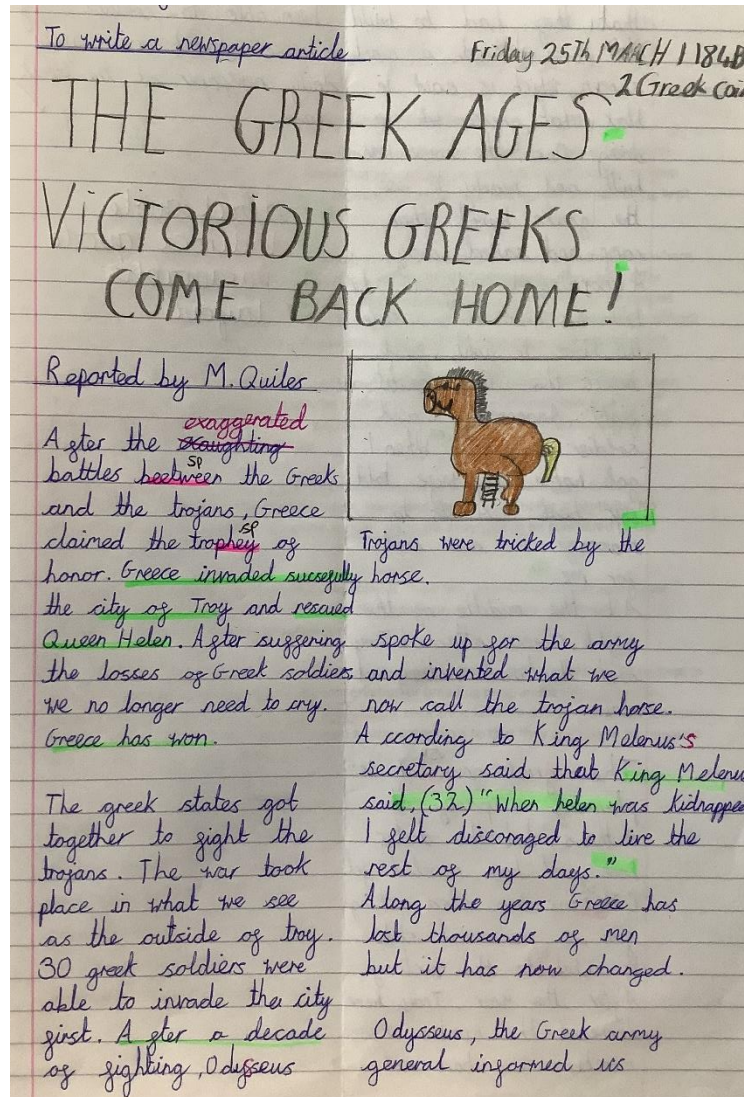 To write a newspaper article
Friday 25Th MARCH 1184B
2 Greek coi
THE GREEK AGES
VICTORIOUS GREEKS
COME BACK HOME!
Reported by M. Quiles
exaggerated
After the exaughting
sp
battles beetween the Greeks
and the trojans, Greece
sp
claimed the trophey of
honor. Greece invaded sucsefully
the city of Troy and rescued
Queen Helen. After suffering
the losses of Greek soldiers
we no longer need to cry.
Greece has won.
The greek states got
together to fight the
trojans. The war took
place in what we see
as the outside of troy.
30 greek soldiers were
able to invade the city
first. After a decade
of fighting, Odysseus
Trojans were tricked by the
horse.
spoke up for the army
and invented what we
now call the trojan horse.
According to King Melenus's
secretary said that King Melenu
said, (32) "When helen was kidnappe
I felt discoraged to live the
rest of my days."
Along the years Greece has
lost thousands of men
but it has now changed.
Odysseus, the Greek army
general informed us